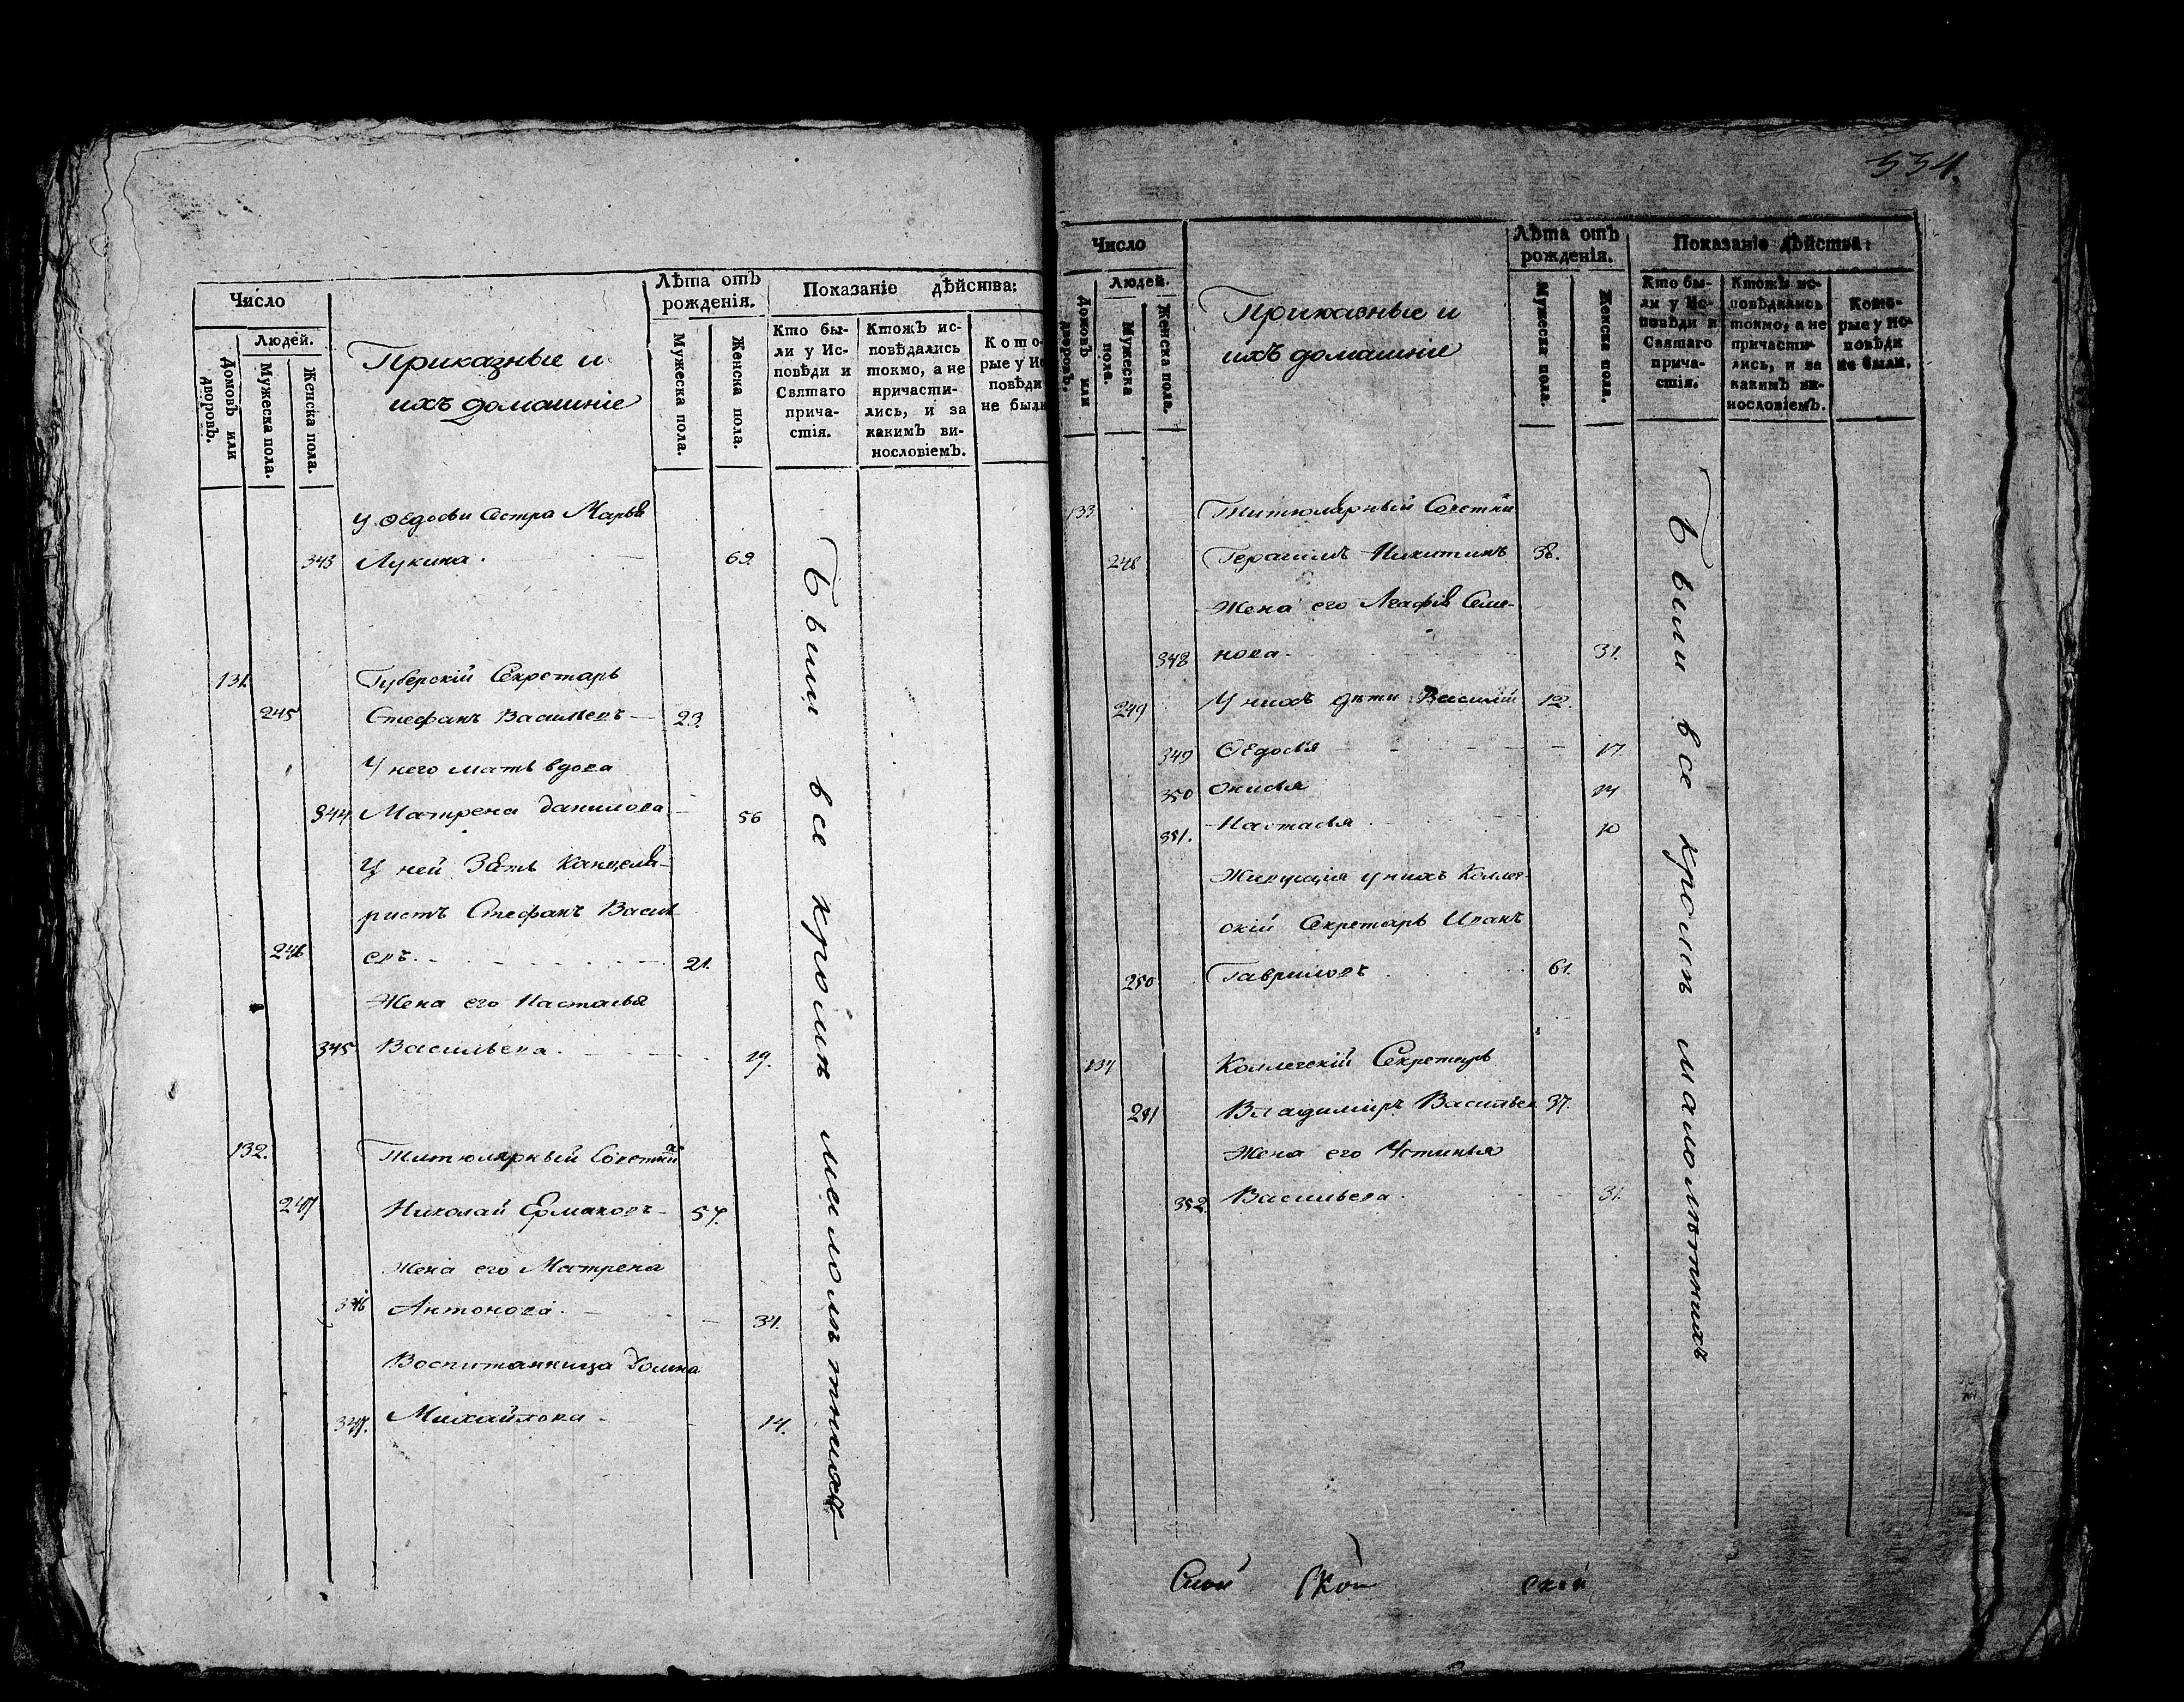 Число
Людей.
Домовъ или дворовъ.
Мужеска пола.
Женска пола.
Приказные и
ихъ домашніе
Лѣта отъ
рожденія.
Мужеска пола.
Женска пола.
Показаніе дѣйства:
Кто бы-
ли у Ис-
повѣди и
Святаго
прича-
стія.
Ктожъ ис-
повѣдались
токмо, а не
причасти-
лись, и за
какимъ ви-
нословіемъ.
Кото-
рые у Ис
повѣди
не были
У Ѳедосьи Сестра Марья
343 Лукина 69.
131. Губерскій Секретарь
245 Стефанъ Васильевъ 23.
У него мать вдова
344 Матрена Данилова 56
У ней Зять Канцеля-
ристъ Стефанъ Василь
246 евъ. 21.
Жена его Настасья
345 Васильева. 19.
132. Титюлярный Советникъ
247 Николай Ермаковъ 54.
Жена его Матрена
346 Антонова. 34.
Воспитанница
347. Михайлова 14.
Были все кромѣ малолѣтнихъ
534.
Число
Людей.
Домовъ или дворовъ.
Мужеска пола.
Женска пола.
Приказные и
ихъ домашніе
Лѣта отъ
рожденія.
Мужеска пола.
Женска пола.
Показаніе дѣйства:
Кто бы-
ли у Ис-
повѣди и
Святаго
прича-
стія.
Ктожъ ис-
повѣдались
токмо, а не
причасти-
лись, и за
какимъ ви-
нословіемъ.
Кото-
рые у Ис-
повѣди
не были.
133 Титюлярный Советни
248 Герасимъ Никитинъ 38.
Жена его Агафія Семе-
348 нова 31.
249 У нихъ дѣти Василій 12.
349 Ѳедосья 17
350 Онисья 14
351. Настасья 10
Живущія у нихъ Коллег-
скій Секретарь Иванъ
250 Гавриловъ 61.
134 Коллегскій Секретарь
251 Владимиръ Васильев 37.
Жена его Устинья
352. Васильева 31.
Были все кромѣ малолѣтнихъ
скій